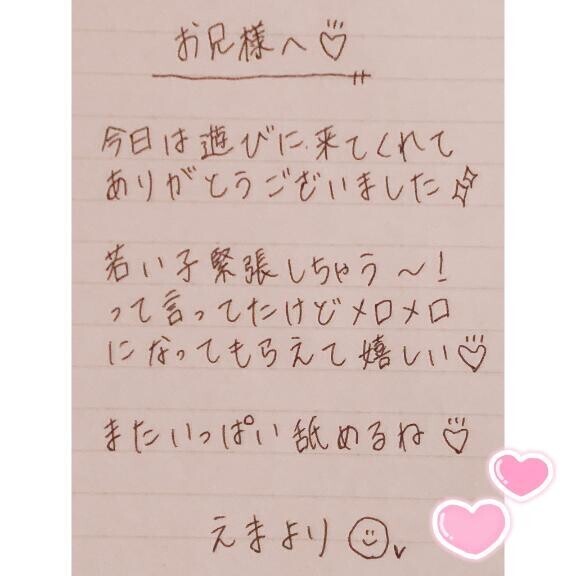 お兄様へ♡
今日は遊びに来てくれて
ありがとうございました✨
若い子緊張しちゃう〜!
って言ってたけどメロメロ
になってもらえて嬉しい♡
またいっぱい舐めるね♡
えまより☺